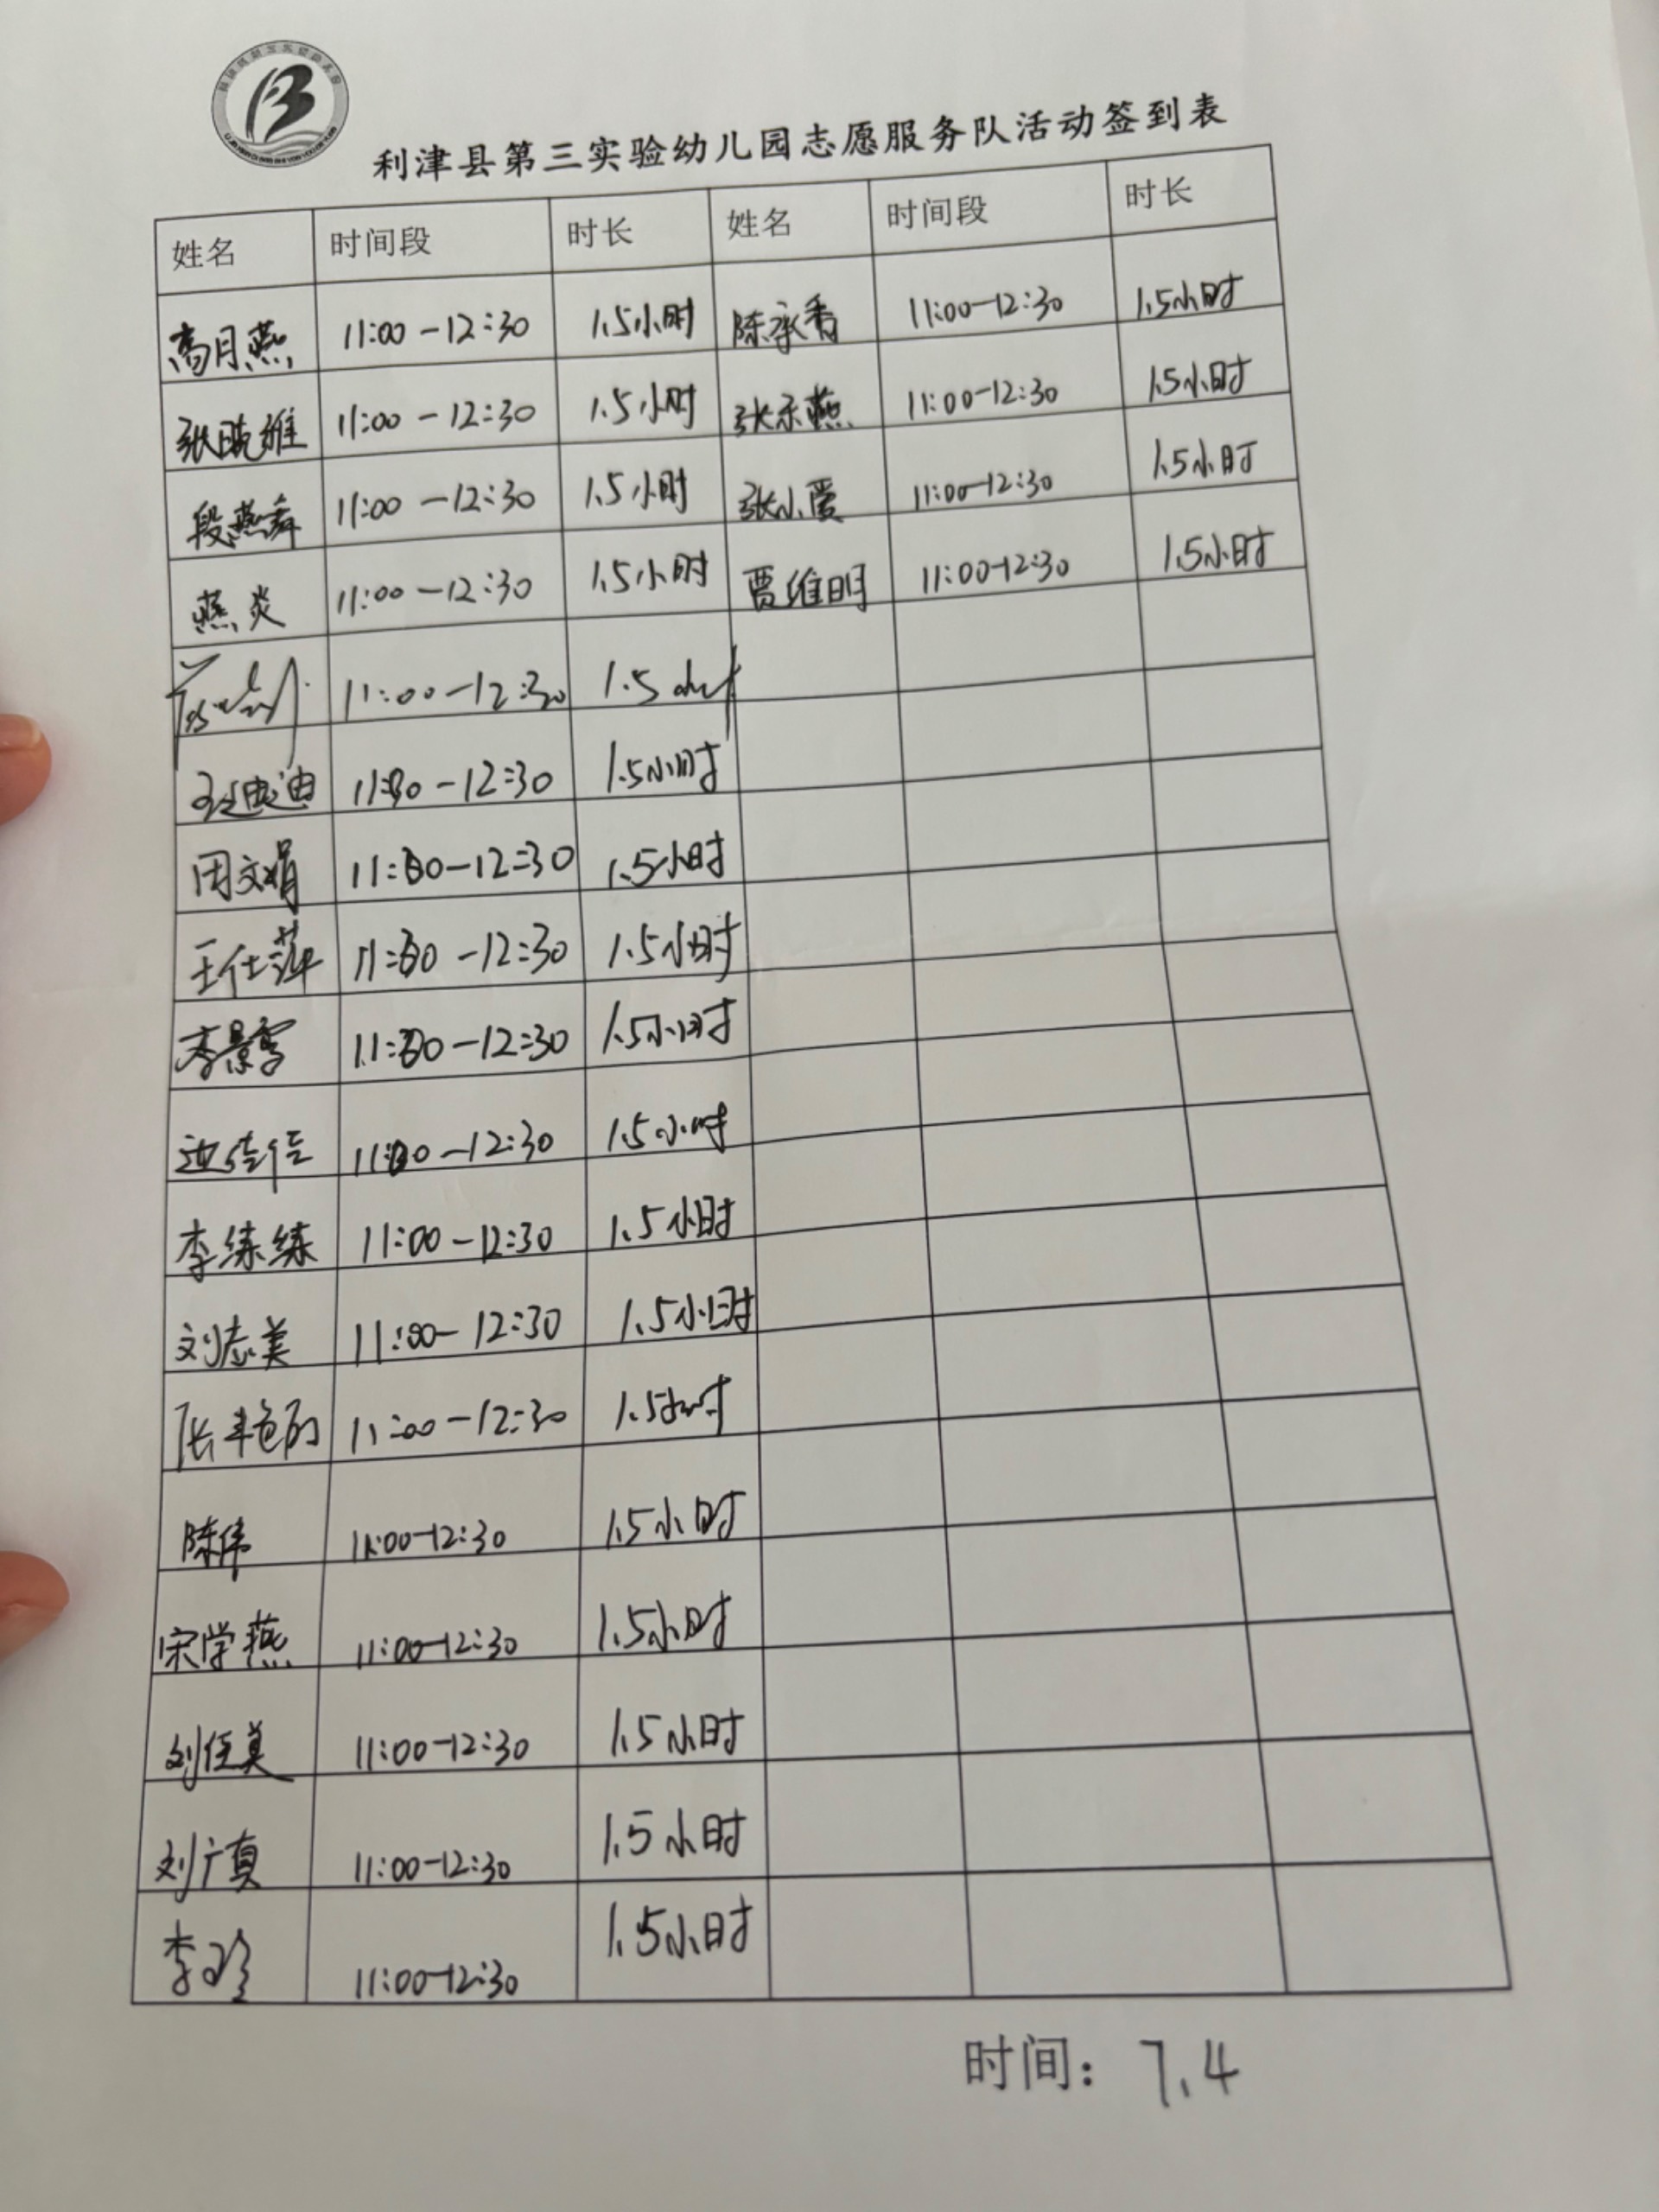 利津县第三实验幼儿园志愿服务队活动签到表
姓名 时间段 时长 姓名 时间段 时长
高月燕 11:00-12:30 1.5小时 陈承香 11:00-12:30 1.5小时
张晓维 11:00-12:30 1.5小时 张永燕 11:00-12:30 1.5小时
段燕舞 11:00-12:30 1.5小时 张小爱 11:00-12:30 1.5小时
燕炎 11:00-12:30 1.5小时 贾维明 11:00-12:30 1.5小时
11:00-12:30 1.5小时
11:00-12:30 1.5小时
周文娟 11:00-12:30 1.5小时
王仕萍 11:00-12:30 1.5小时
李景雪 11:00-12:30 1.5小时
边佳佳 11:00-12:30 1.5小时
李练练 11:00-12:30 1.5小时
刘志美 11:00-12:30 1.5小时
11:00-12:30 1.5小时
陈伟 11:00-12:30 1.5小时
宋学燕 11:00-12:30 1.5小时
刘任美 11:00-12:30 1.5小时
刘广真 11:00-12:30 1.5小时
李玲 11:00-12:30 1.5小时
时间：7.4